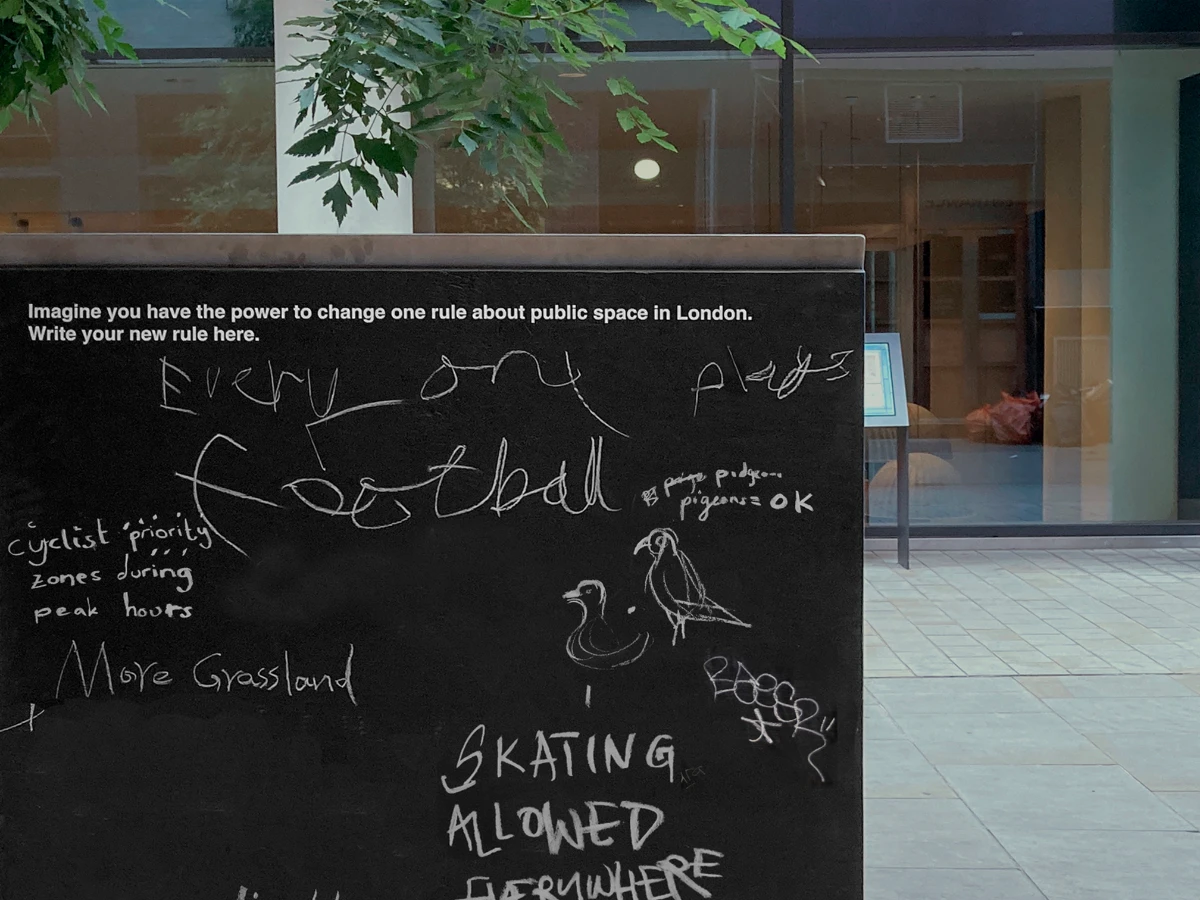 Imagine you have the power to change one rule about public space in London.
Write your new rule here.
Every one plays
football
pigeons = OK
cyclist priority
zones during
peak hours
More Grassland
SKATING
ALLOWED
EVERYWHERE